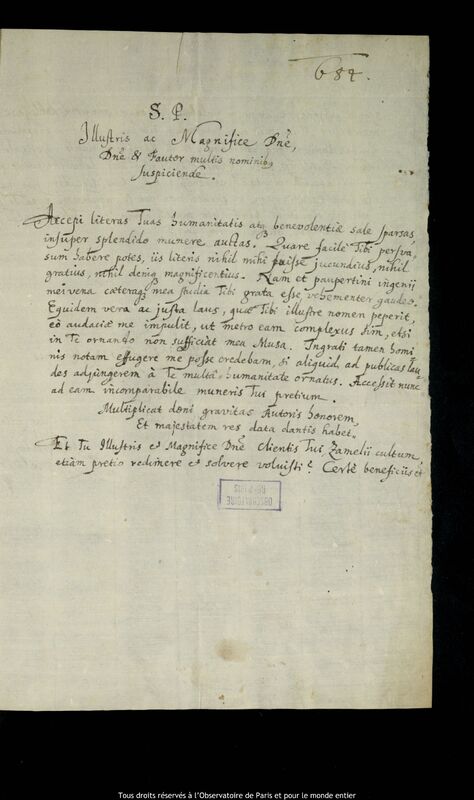 684.
S. P.
Illustris ac Magnifice Dne,
Dne & Fautor multis nominibq
suspiciende.
Accepi literas Tuas humanitatis atq benevolentiæ sale sparsas,
insuper splendido munere auctas. Quare facile Tibi persua,
sum habere potes, iis literis nihil mihi fuisse jucundius, nihil
gratius, nihil deniq magnificentius. Nam et paupertini ingenij
mei vena cæteraq mea studia Tibi grata esse, vehementer gaudeo.
Equidem vera ac justa laus, quæ Tibi illustre nomen peperit,
eò audaciæ me impulit, ut metro eam complexus sim, etsi
in Te ornando non sufficiat mea Musa. Ingrati tamen homi
nis notam effugere me posse credebam, si aliquid ad publicas lau,
des adjungerem à Te multa humanitate ornatus. Accessit nunc
ad eam incomparabile muneris Tui pretium.
Multiplicat doni gravitas Autoris honorem,
Et majestatem res data dantis habet.
Et Tu Illustris & Magnifice Dne Clientis Tui Zamelii cultum
etiam pretio redimere & solvere voluisti? Certè beneficiis et
OBSERVATOIRE
DE PARIS
Tous droits réservés à l'Observatoire de Paris et pour le monde entier